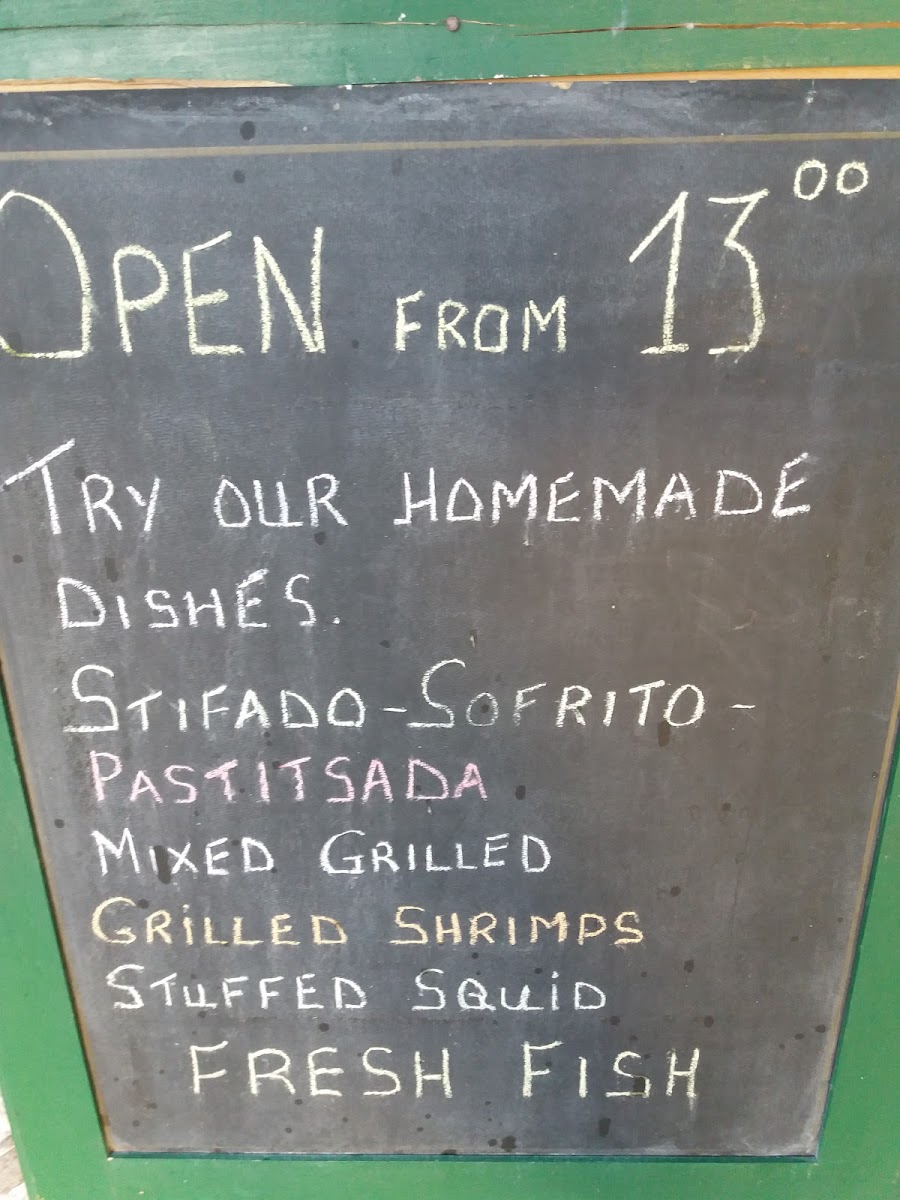 OPEN FROM 13⁰⁰
TRY OUR HOMEMADE
DISHES.
STIFADO-SOFRITO-
PASTITSADA
MIXED GRILLED
GRILLED SHRIMPS
STUFFED SQUID
FRESH FISH